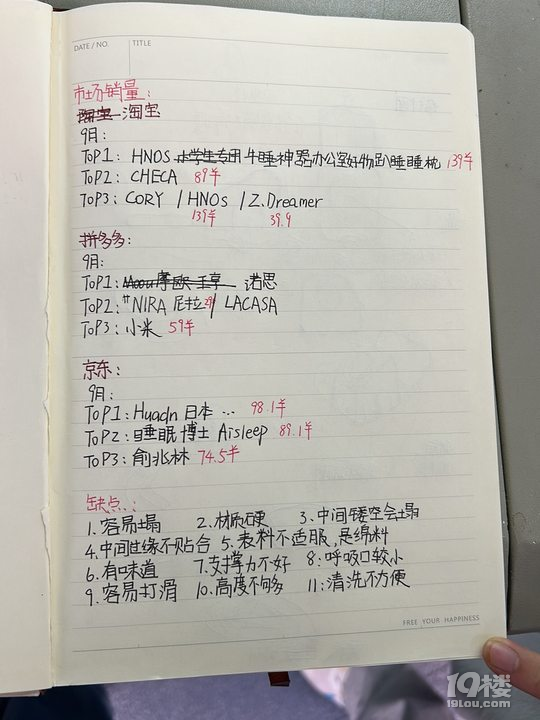 DATE / NO. TITLE
市场销量:
淘宝 淘宝
9月:
TOP1: HNOS 小学生专用 午睡神器办公室好物趴睡睡枕 139羊
TOP2: CHECA 89羊
TOP3: CORY / HNOS / Z.Dreamer
139羊 39.9
拼多多:
9月:
TOP1: 摩欧 诺思
TOP2: NIRA 尼拉 / LACASA
TOP3: 小米 59羊
京东:
9月:
TOP1: Huadn 日本 ... 98.1羊
TOP2: 睡眠博士 Aisleep 89.1羊
TOP3: 俞兆林 74.5羊
缺点:
1. 容易塌 2. 材质硬 3. 中间镂空会塌
4. 中间边缘不贴合 5. 表料不适服,是绵料
6. 有味道 7. 支撑力不好 8: 呼吸口较小
9. 容易打滑 10. 高度不够多 11: 清洗不方便
FREE YOUR HAPPINESS
19楼
19lou.com